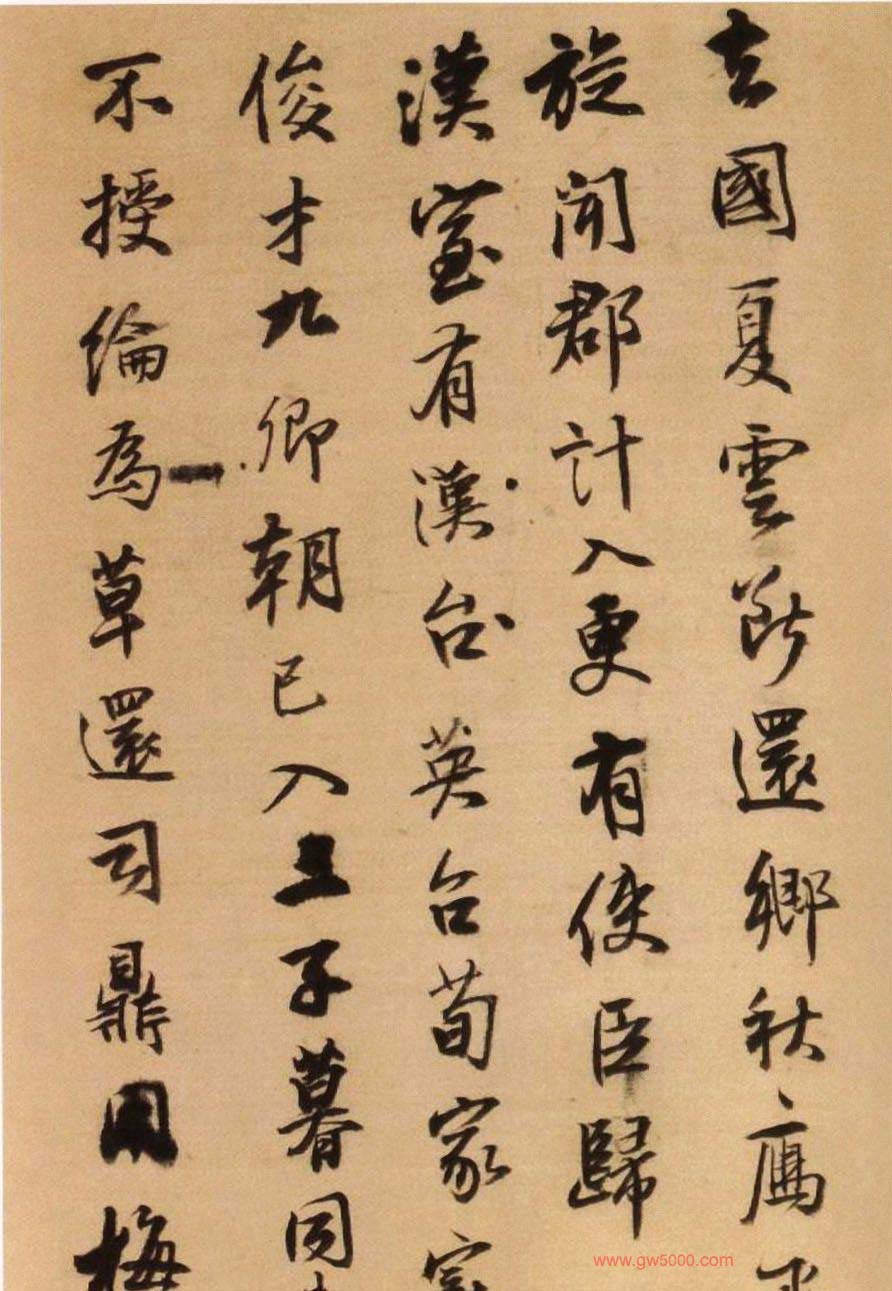 去國夏雲斷還鄉秋鴈
旋聞郡計入更有使臣歸
漢臺有漢台英台荀家
俊才九卿朝已入三子暮同
不授綸為草還司鼎用梅
www.gw5000.com